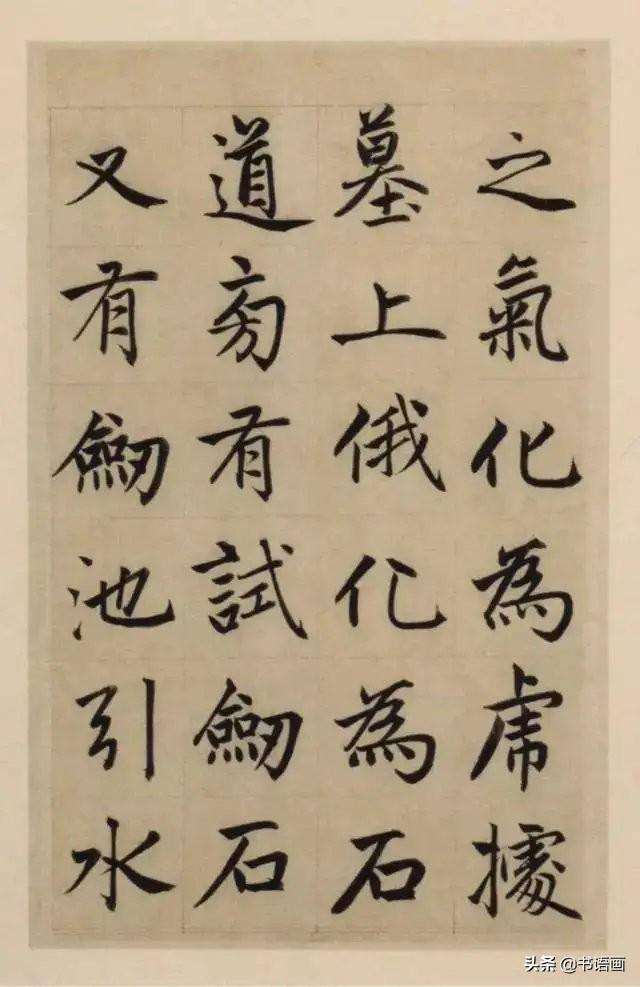 之氣化為虎據
墓上俄化為石
道旁有試劒石
又有劒池引水
头条 @书语画